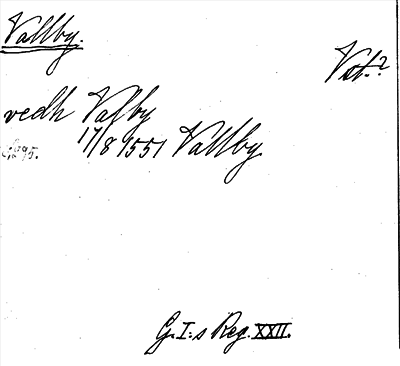 Vallby.
Vst.?
vedh Valby
17/8 1551 Vallby
G.I:s Reg. XXII.